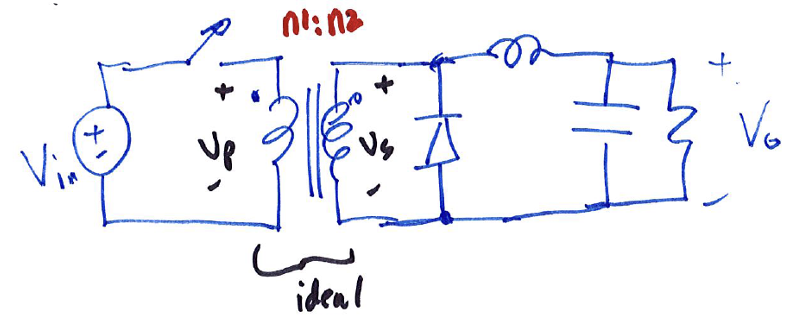 n1:n2
+ + +
Vin + - Vp Vs Vo
- - -
ideal